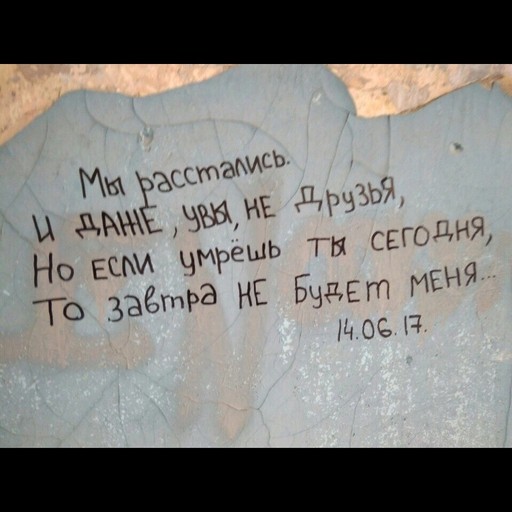 Мы расстались.
И ДАЖЕ, УВЫ, НЕ ДРУЗЬЯ,
Но если умрёшь ты СЕГОДНЯ,
То завтра НЕ БУДЕТ МЕНЯ...
14.06.17.